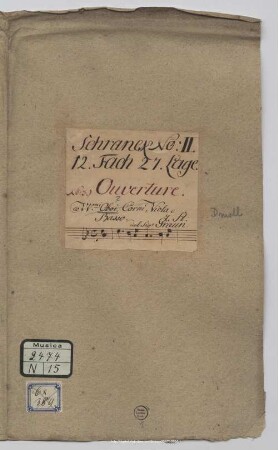 Schranck No: II.
12. Fach 27. Lage.
No. 3 Ouverture.
2 Vni 2 Oboi 2 Corni Viola
Basso.
del Sigr Graun
D moll
Musica
2474
N 15